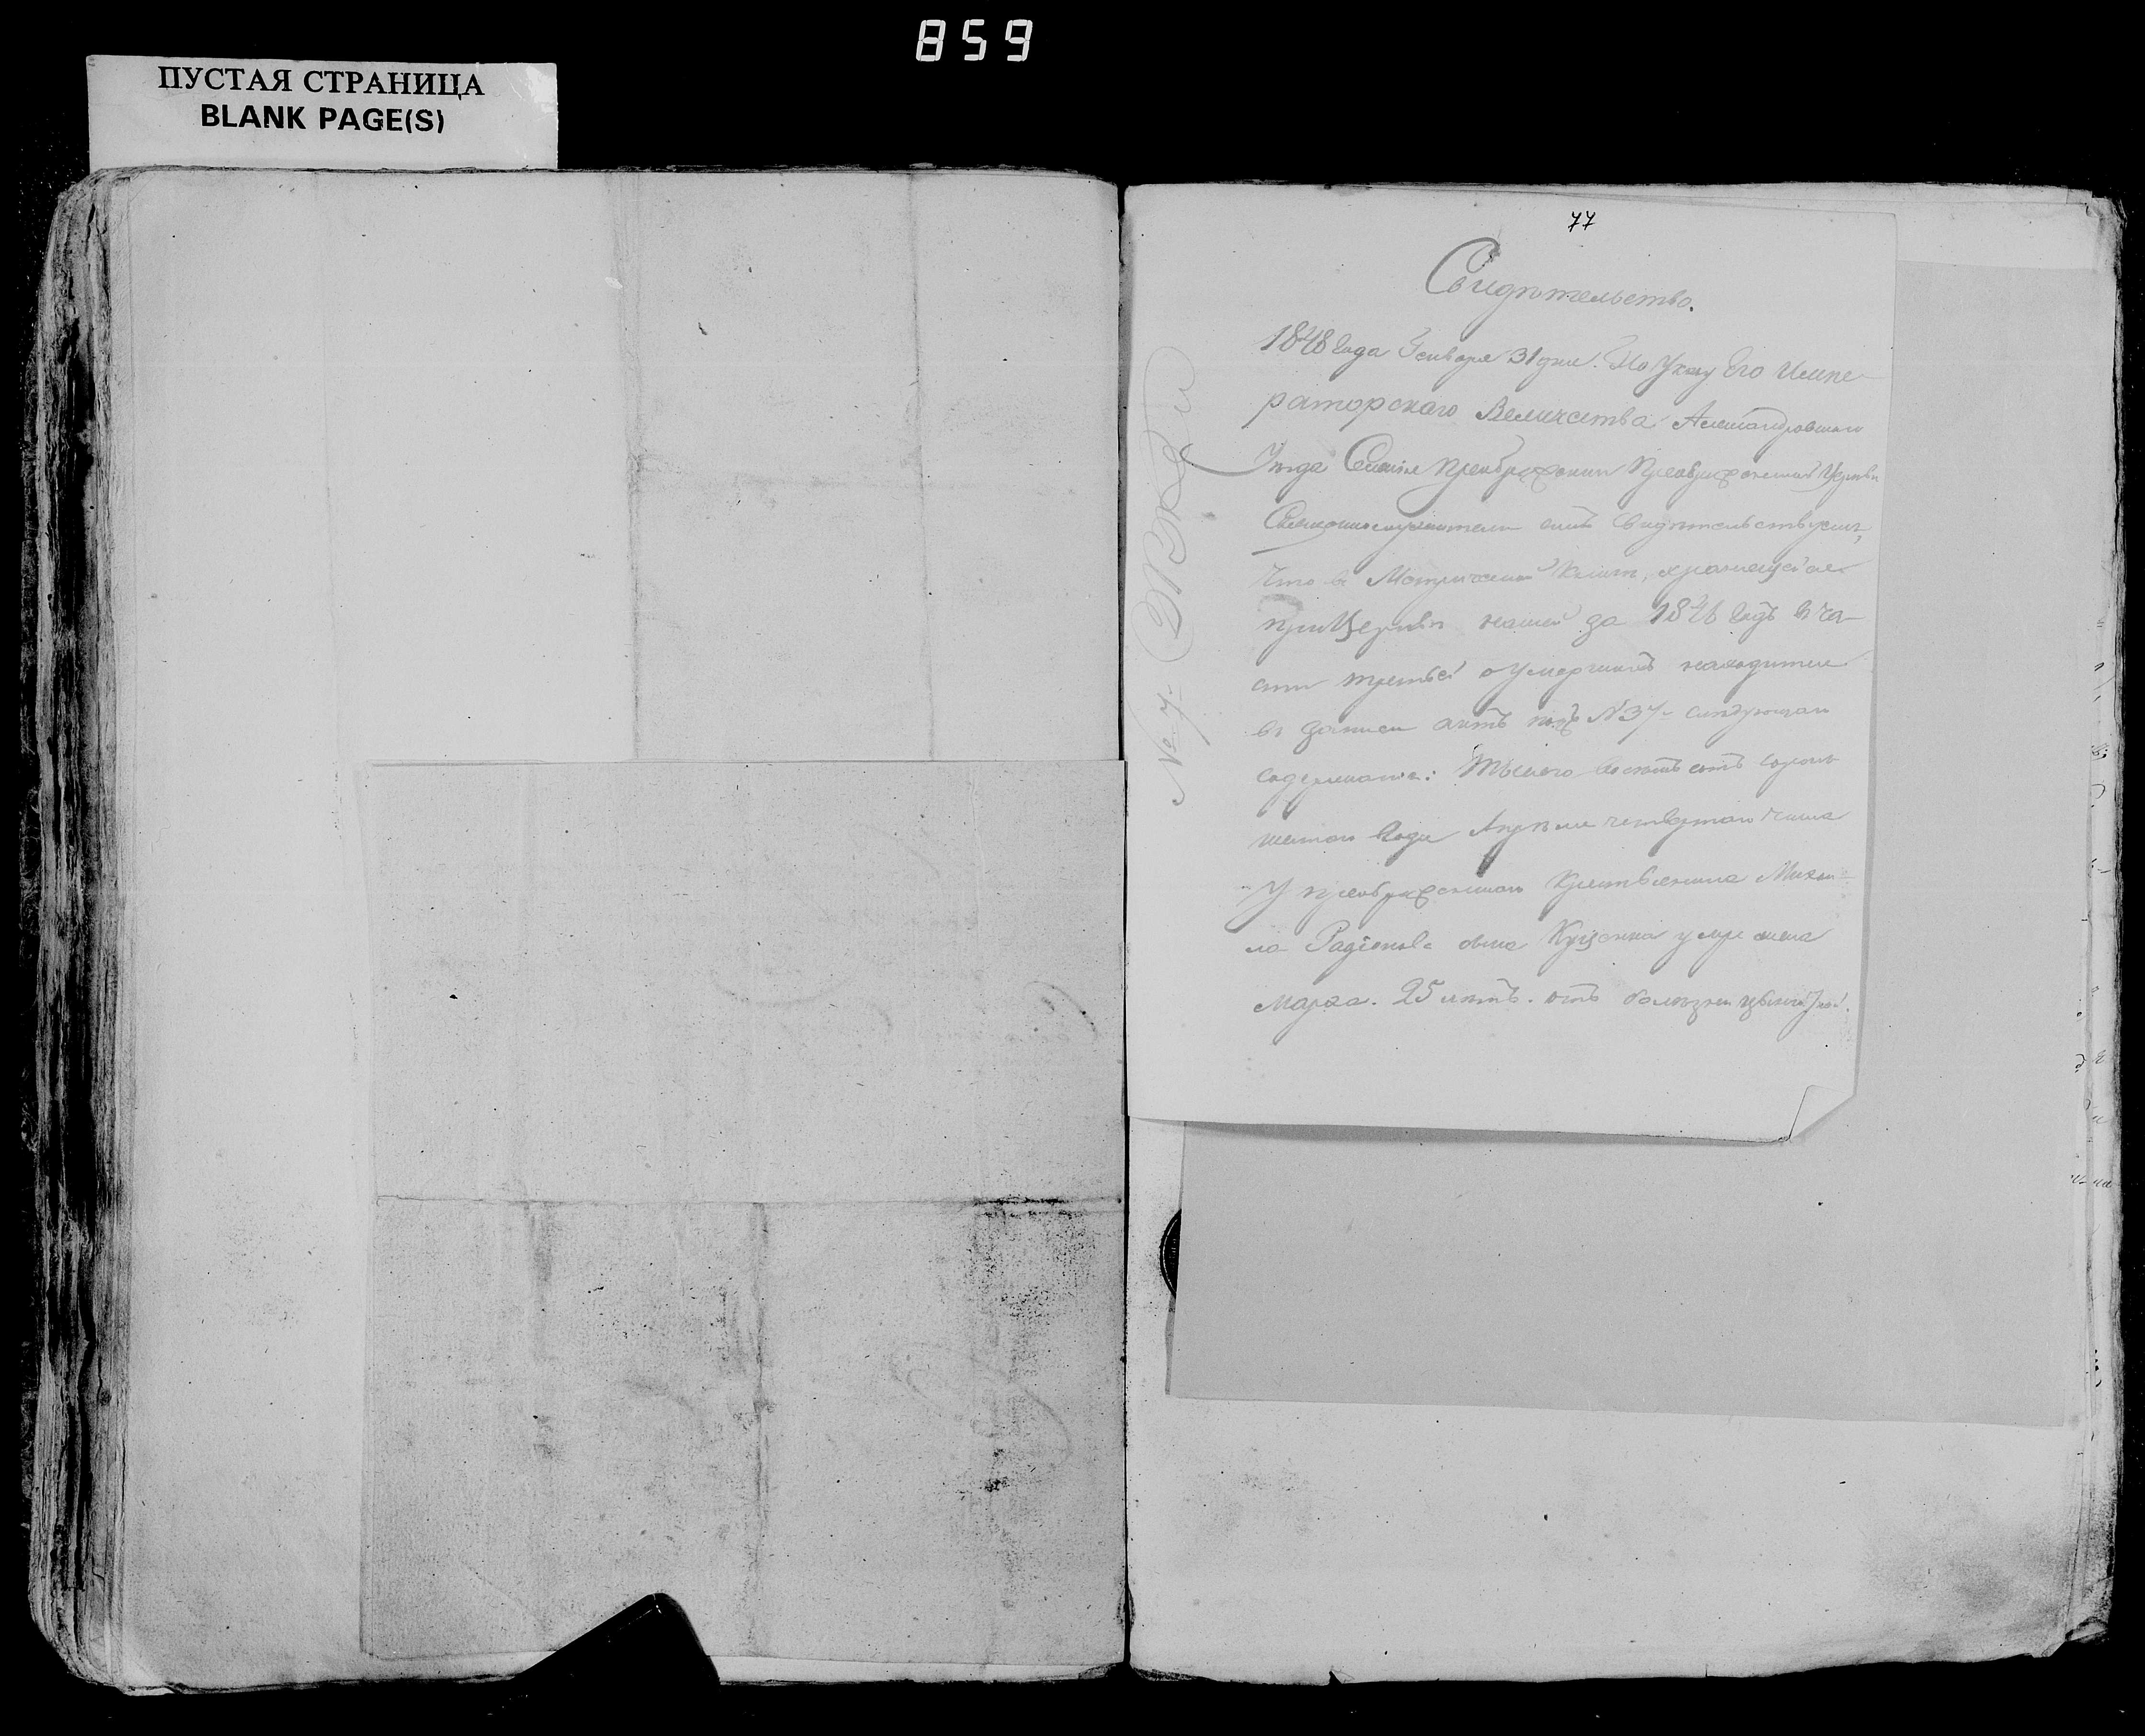 859
ПУСТАЯ СТРАНИЦА
BLANK PAGE(S)
77
Свидѣтельство.
1848 года Генваря 31 дня. По Указу Его Импе-
раторскаго Величества Александровскаго
Уѣзда Селенія Преображенки Преображенской Церкви
Священнослужители симъ Свидѣтельствуемъ,
Что въ Метрической Книгѣ, хранящейся
при Церкви нашей за 1846 годъ въ ча-
сти третьей о умершихъ находится
въ записи актъ подъ № 37 слѣдующаго
содержанія: Тысяча восемь сотъ сорокъ
шестаго Года Апрѣля четвертаго числа
У преображенскаго Крестьянина Михаи-
ла Радіонова сына Куценка умре жена
Марѳа. 25 лѣтъ. отъ болѣзни
№ 7